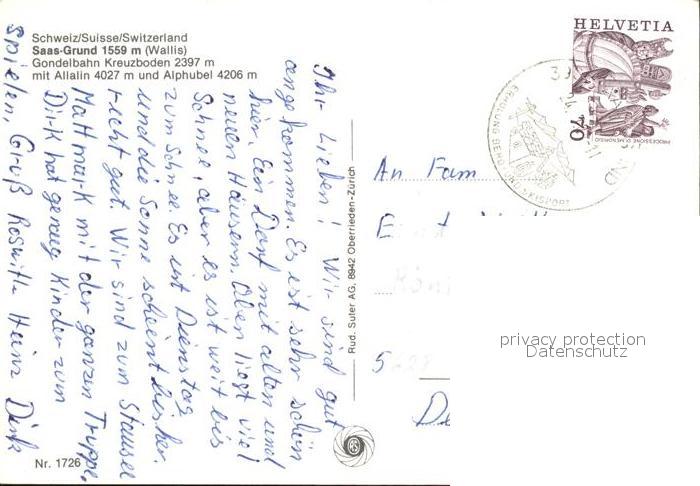 Schweiz/Suisse/Switzerland
Saas-Grund 1559 m (Wallis)
Gondelbahn Kreuzboden 2397 m
mit Allalin 4027 m und Alphubel 4206 m
Ihr Lieben! Wir sind gut
angekommen. Es ist sehr schön
hier. Ein Dorf mit alten und
neuen Häusern. Oben liegt viel
Schnee, aber es ist weit bis
zum Schnee. Es ist Dienstag
und die Sonne scheint bisher
recht gut. Wir sind zum Stausee
Mattmark mit der ganzen Truppe.
Dirk hat genug Kinder zum
Spielen, Gruß Roswitha Heinz Dirk
Nr. 1726
Rud. Suter AG, 8942 Oberrieden-Zürich
RS
HELVETIA
70
PROCESSIONE DI MENDRISIO
ERHOLUNG
SPORT
An Fam
E
5628
D
privacy protection
Datenschutz